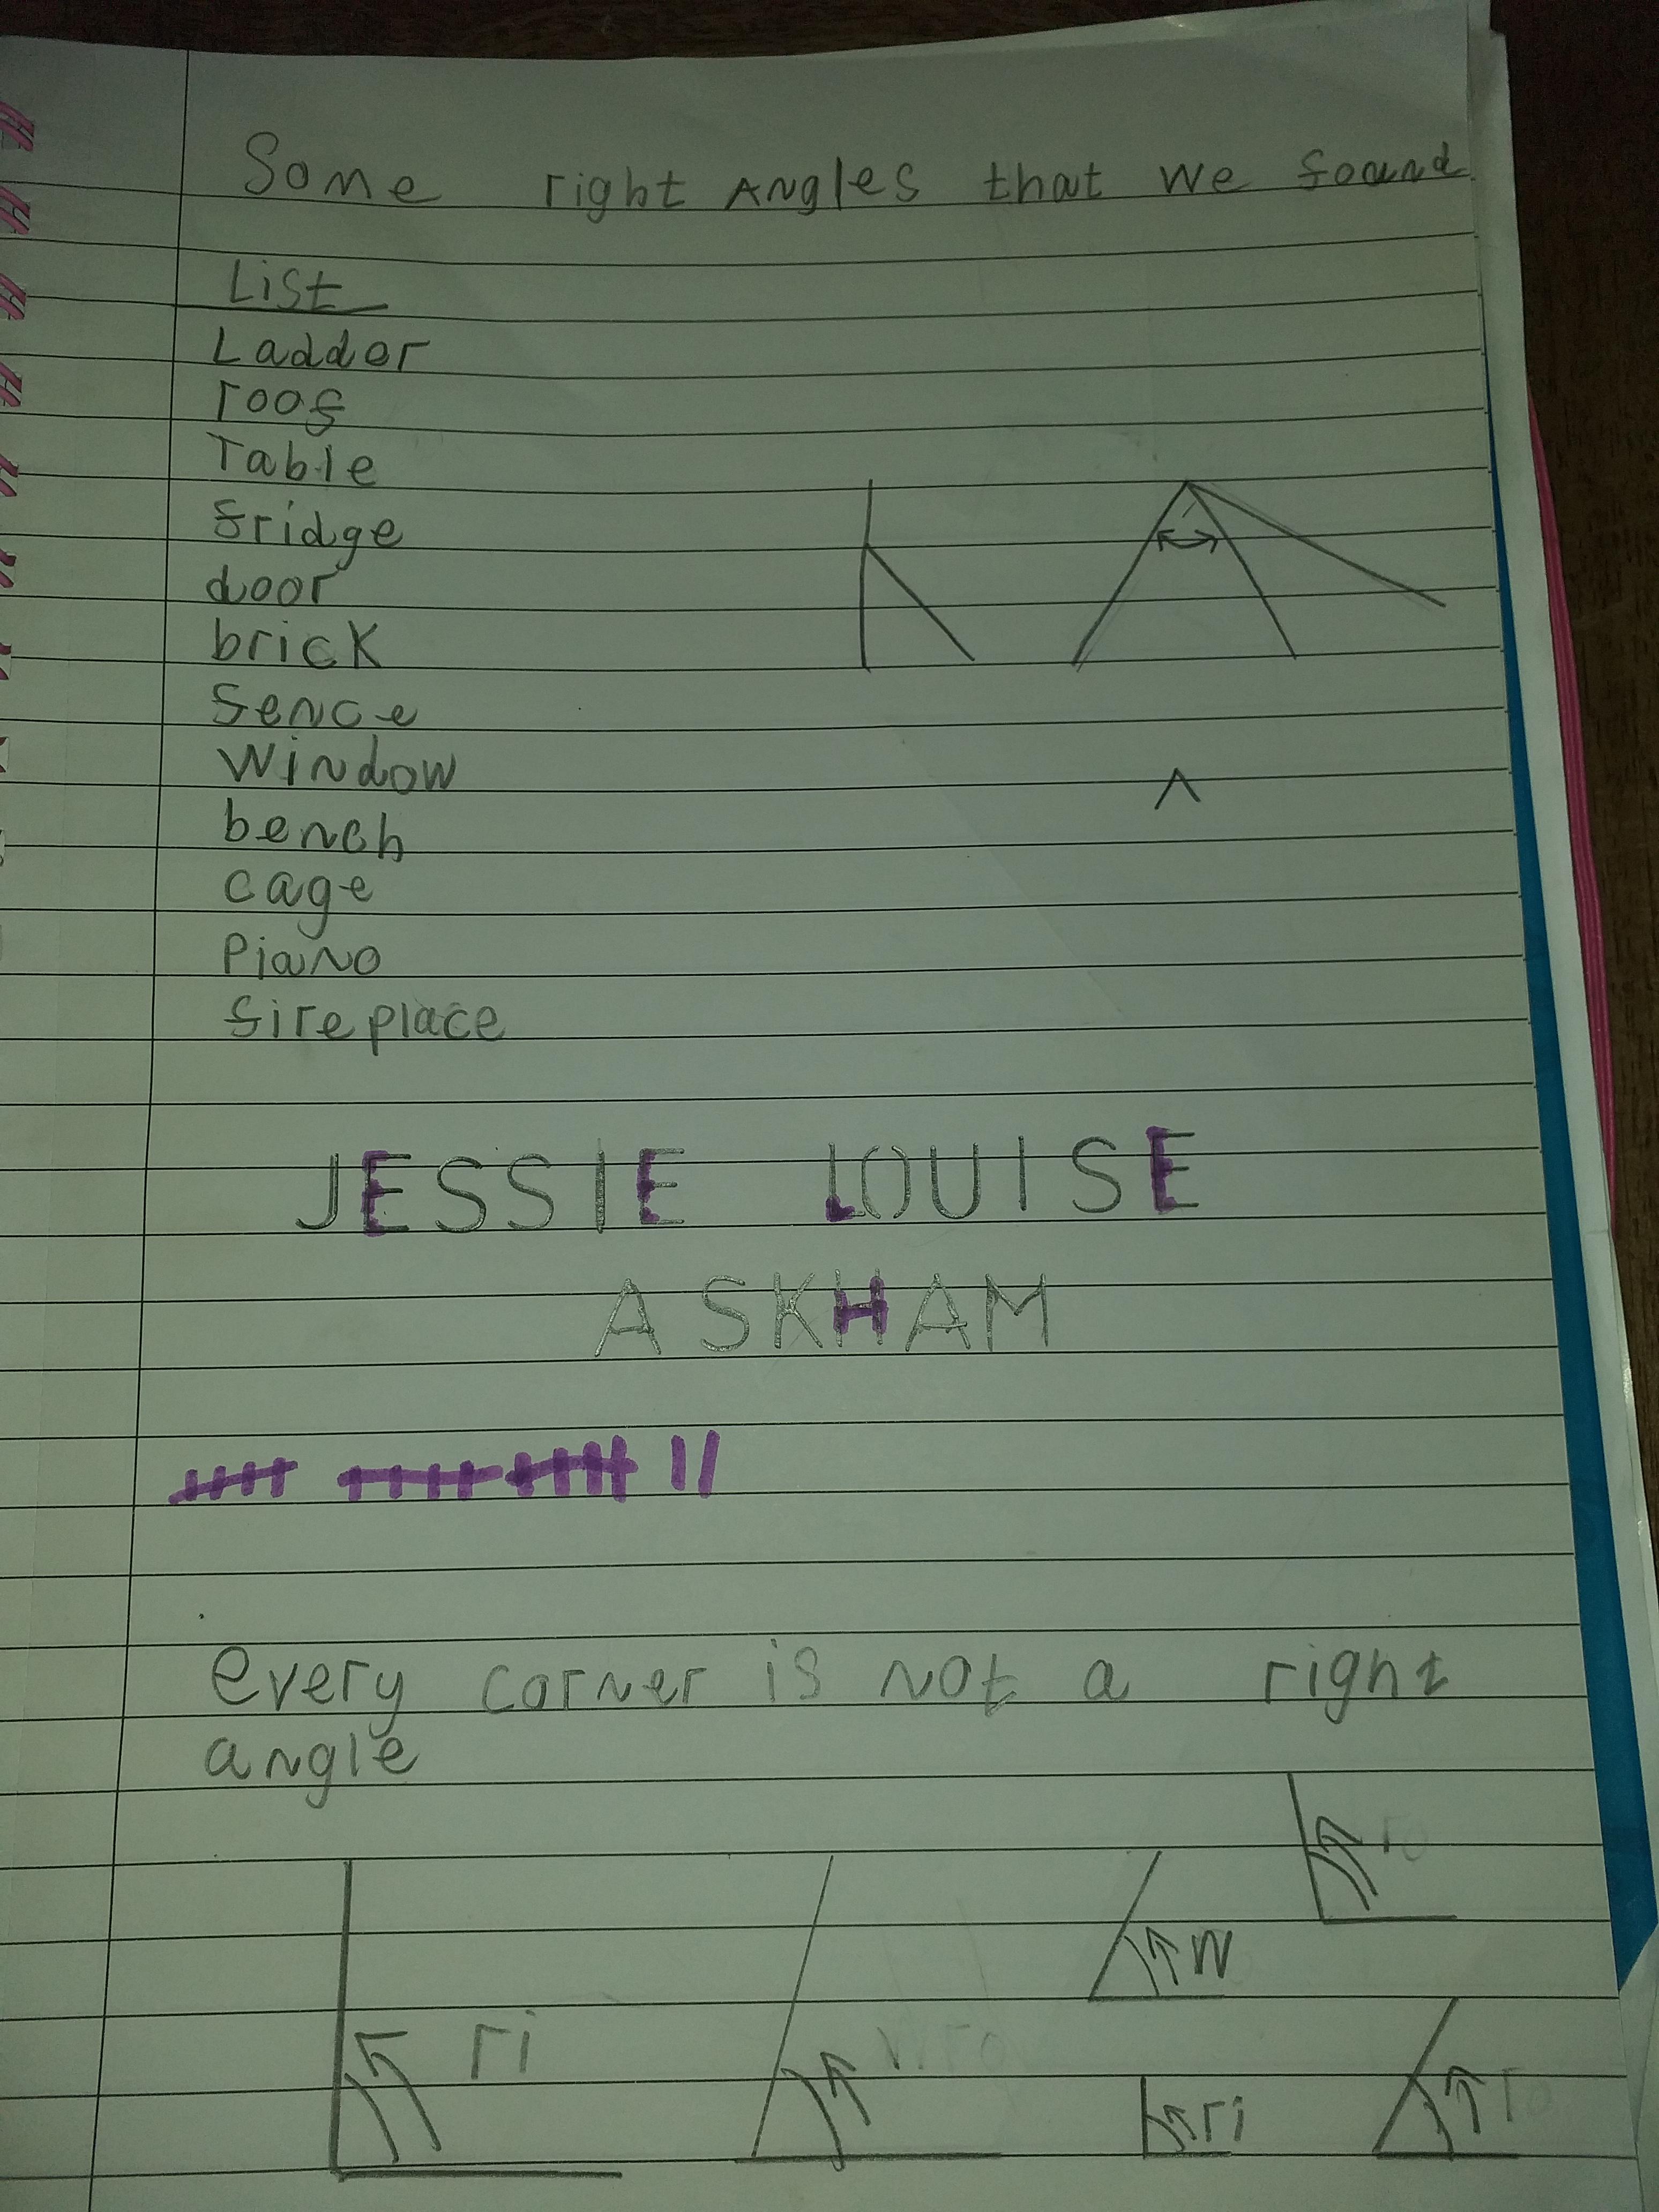 Some right Angles that we found
List
Ladder
roof
Table
fridge
door
brick
fence
Window
bench
cage
Piano
fireplace
JESSIE LOUISE
ASKHAM
every corner is not a right
angle
N
ri
ri